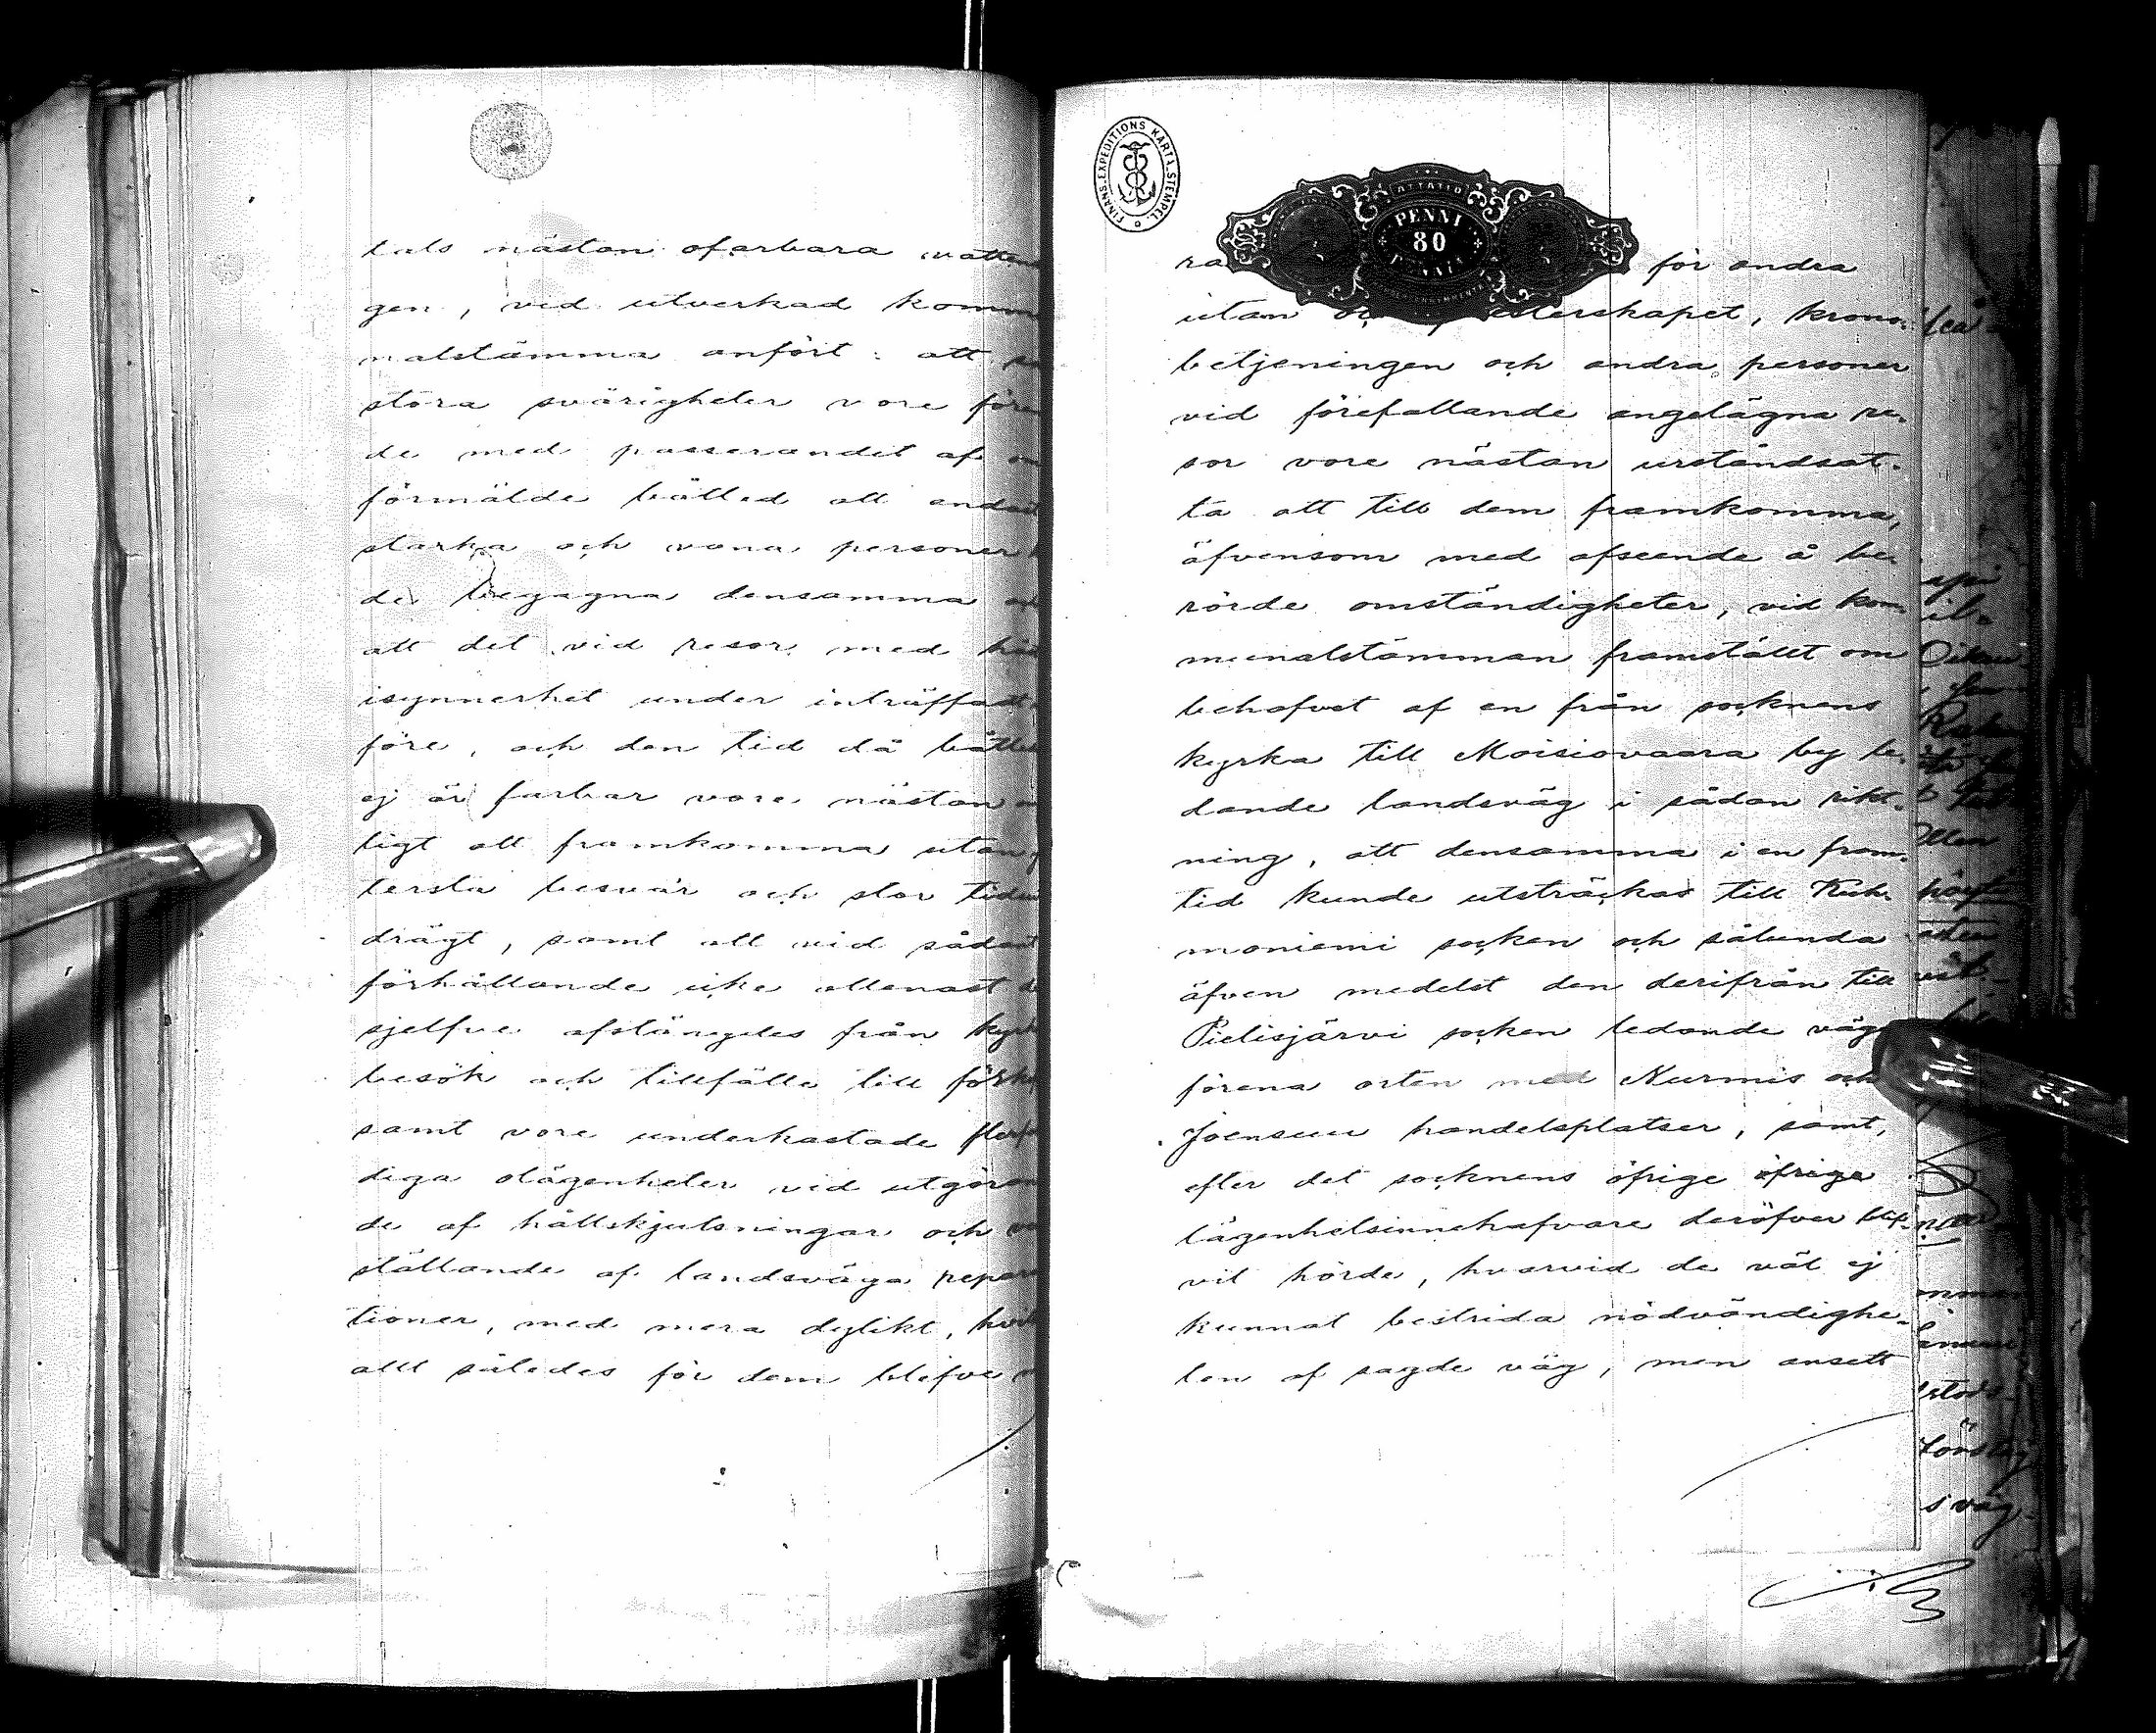 tals nästan ofarbara vatten
gen, vid utverkad komm
nalstämma anfört: att så
stora svårigheter vore före
de med passerandet af om
förmälde båtled att endast
starka och vana personer
de begagna densamma
att det vid resor med
isynnerhet under inträffadt
före, och den tid då båtled
ej är farbar vore nästan
ligt att framkomma utan
tersta besvär och stor tidsut
drägt, samt att vid sådant
förhållande icke allenast
sjelfve afstängdes från kyrko
besök och tillfälle till förhör
samt vore underkastade flerfal
diga olägenheter vid utgöran
de af hållskjutsningar och
ställande af landsväga repara
tioner, med mera dylikt, hvil
allt således för dem blefve
ra för andra
utan presterskapet, krono-
betjeningen och andra personer
vid förefallande angelägna re-
sor vore nästan urståndsat-
ta att till dem framkomma,
äfvensom med afseende å be-
rörde omständigheter, vid kom-
munalstämman framställt om
behofvet af en från socknens
kyrka till Moisiovaara by le-
dande landsväg i sådan rikt-
ning, att densamma i en fram-
tid kunde utsträckas till Kuh-
moniemi socken och sålunda
äfven medelst den derifrån till
Pielisjärvi socken ledande väg
förena orten med Nurmis och
Joensuu handelsplatser, samt,
efter det socknens öfrige öfrige
lägenhetsinnehafvare deröfver blif-
vit hörde, hvarvid de väl ej
kunnat bestrida nödvändighe-
ten af sagde väg, men ansett
FINANS-EXPEDITIONS KART. STEMPEL
PENNI
80